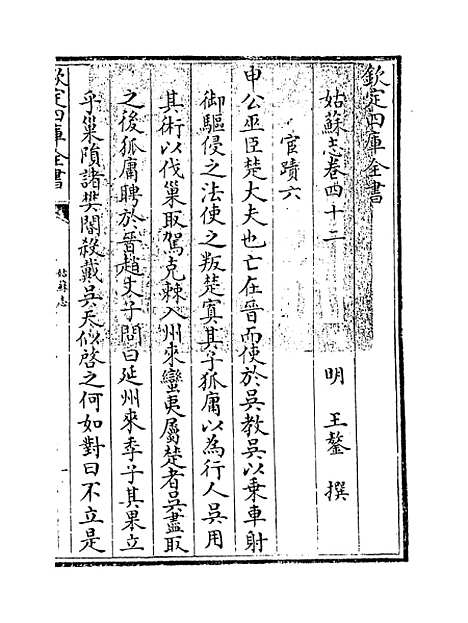 欽定四庫全書
姑蘇志卷四十二
明 王鏊 撰
宦蹟六
申公巫臣楚大夫也亡在晉而使於吳教吳以乗車射
御驅侵之法使之叛楚寘其子狐庸以為行人吳用
其術以伐巢取駕克棘入州來蠻夷屬楚者吳盡取
之後狐庸聘於晉趙文子問曰延州來季子其果立
乎巢隕諸樊閽殺戴吳天似啓之何如對曰不立是
欽定四庫全書
姑蘇志
一